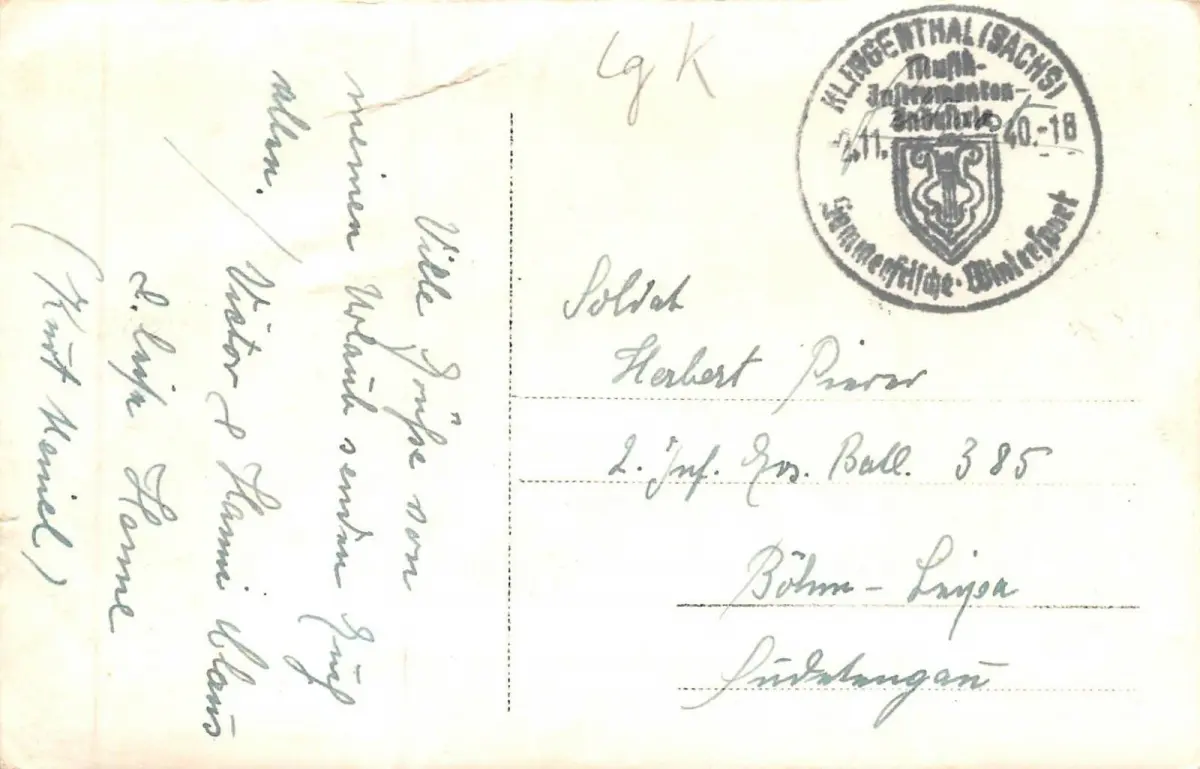 Lg K
KLINGENTHAL (SACHS)
Musik-
Instrumenten-
Industrie
2.11. 40.-18
Sommerfrische · Wintersport
Viele Grüße von
meinen Urlaub senden Euch
allen.
Victor & Hanni Claus
(Kurt Meinel)
Soldat
Herbert
2. Inf. Ers. Batl. 385
Böhm-Leipa
Sudetengau